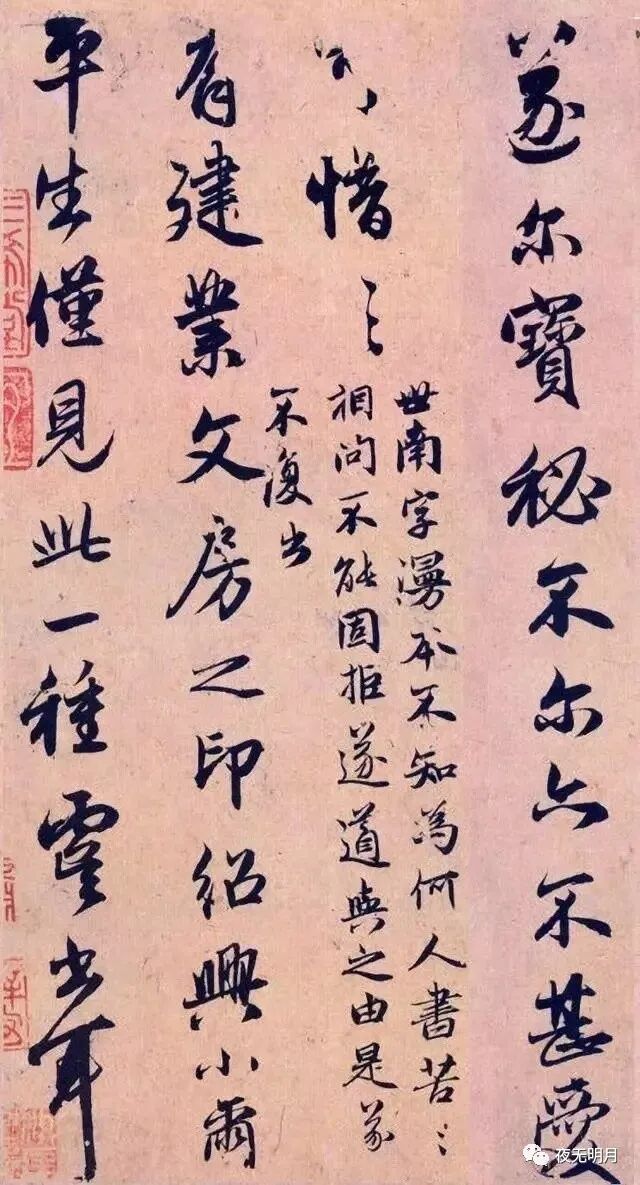 遂尔寶秘不尔亦不甚愛
可惜〻
世南字漫本不知為何人書苦〻
相問不能固拒遂道與之由是
不復出
有建業文房之印紹興小爾
平生僅見此一種虞書耳
夜无明月